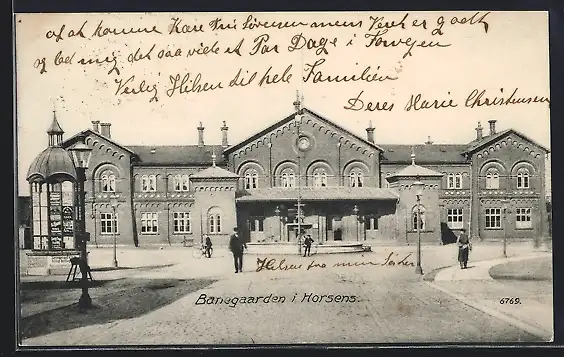 af at komme Kære Fru Sørensen mens Veret er godt
og bed mig det saa viele at Par Dage i Forvejen
Venlig Hilsen til hele Familien
Deres Marie Christensen
Hilsen fra min Søster
Banegaarden i Horsens.
6769.